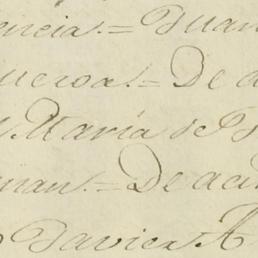 encia.= Juan
ueroa.= De a
María de
man.= De acu
Javier A